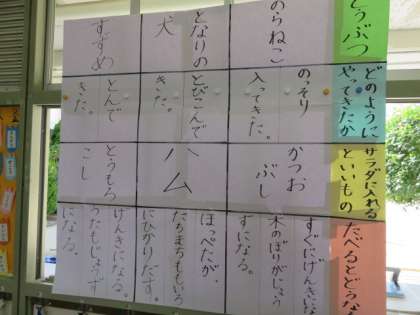 どうぶつ
のらねこ
となりの
犬
すずめ
どのように
やってきたか
のっそり
入ってきた。
とびこんで
きた。
とんで
きた。
サラダに入れる
といいもの
かつお
ぶし
ハム
とうもろ
こし
たべるとどうな
すぐにげんきにな
木のぼりがじょう
ずになる。
ほっぺたが、
たちまちももいろ
にひかりだす。
げんきになる。
うたもじょうず
になる。